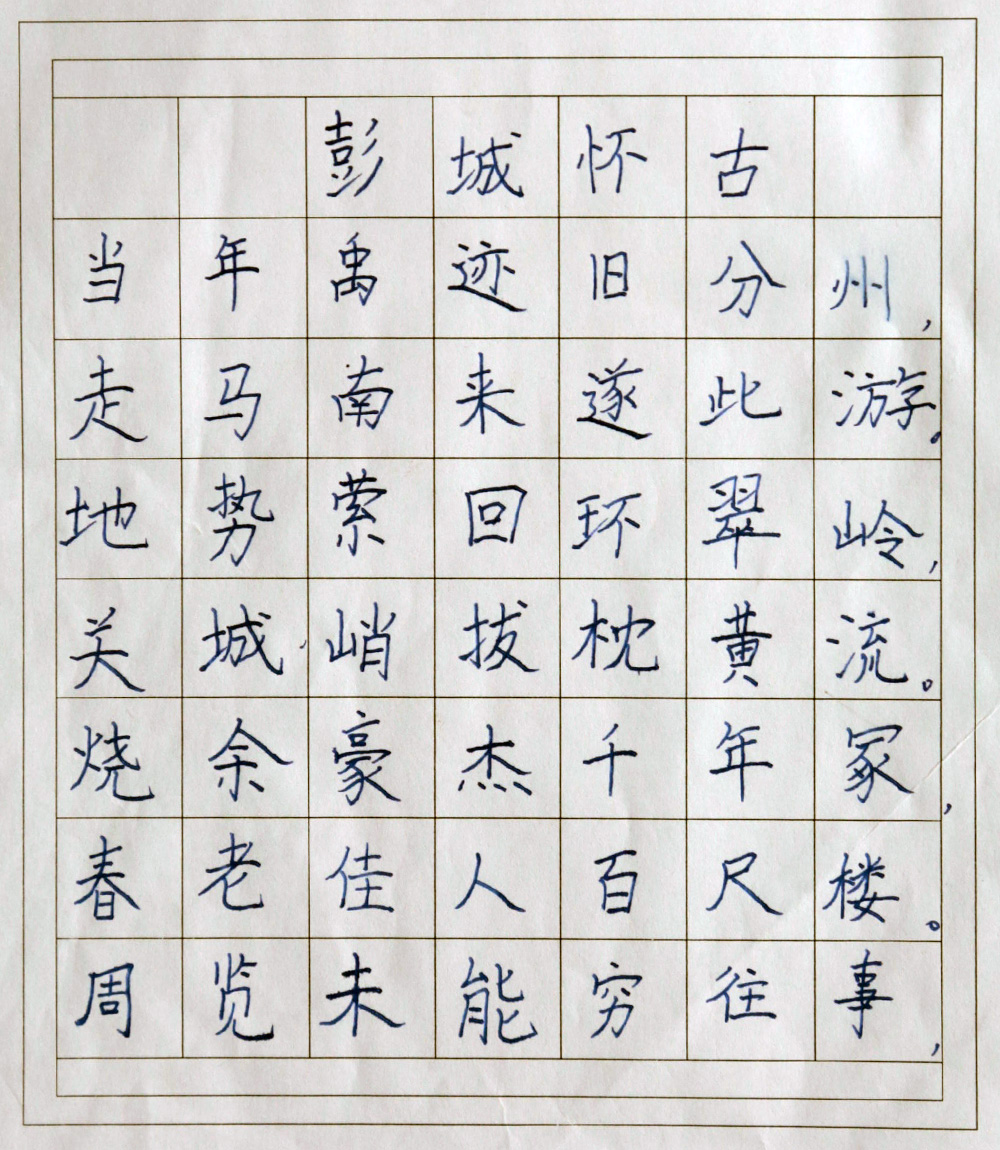 彭城怀古
当年禹迹旧分州，
走马南来遂此游。
地势萦回环翠岭，
关城峭拔枕黄流。
烧余豪杰千年冢，
春老佳人百尺楼。
周览未能穷往事，